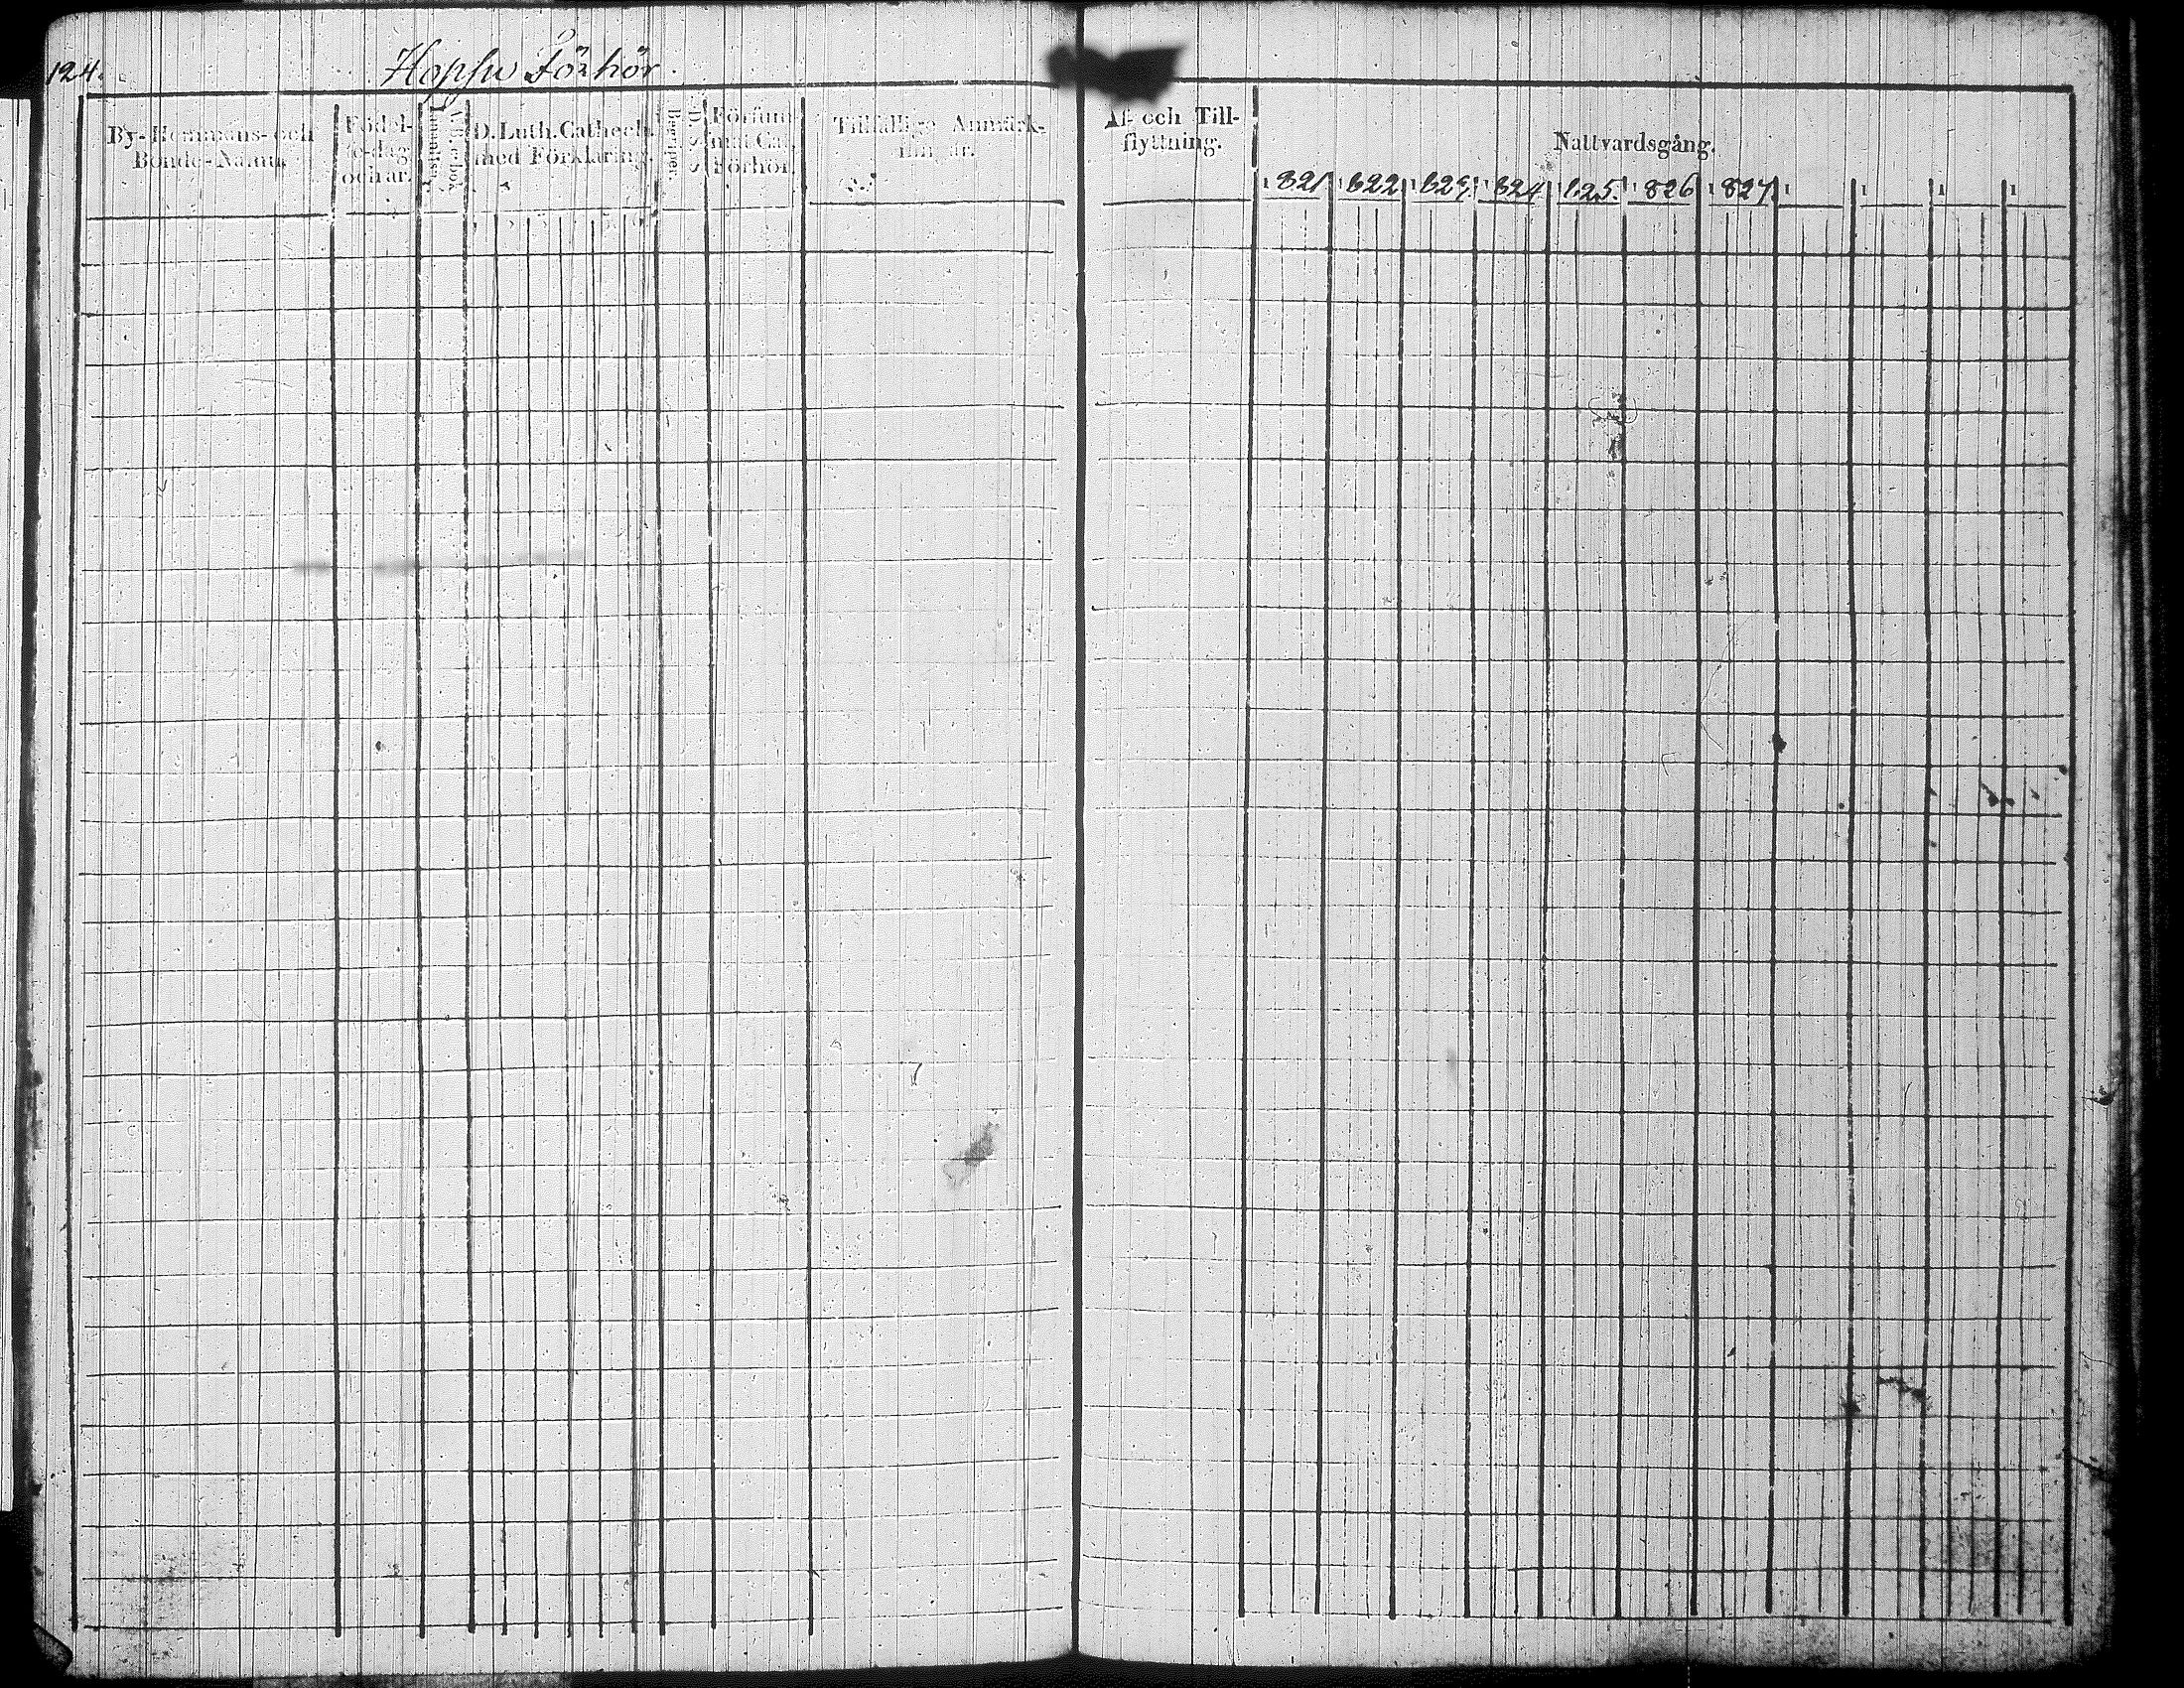 124.
Hopsu Förhör.
By- Hemmans- och
Bonde-Namn.
Födel-
se-dag
och år.
D. Luth. Cathech.
med Förklaring.
Begriper.
Försum-
mat Cat.
Förhör.
Tillfällige Anmärk-
ningar.
Af- och Till-
flyttning.
Nattvardsgång.
1821 1822 1823 1824 1825. 1826 1827 1 1 1 1